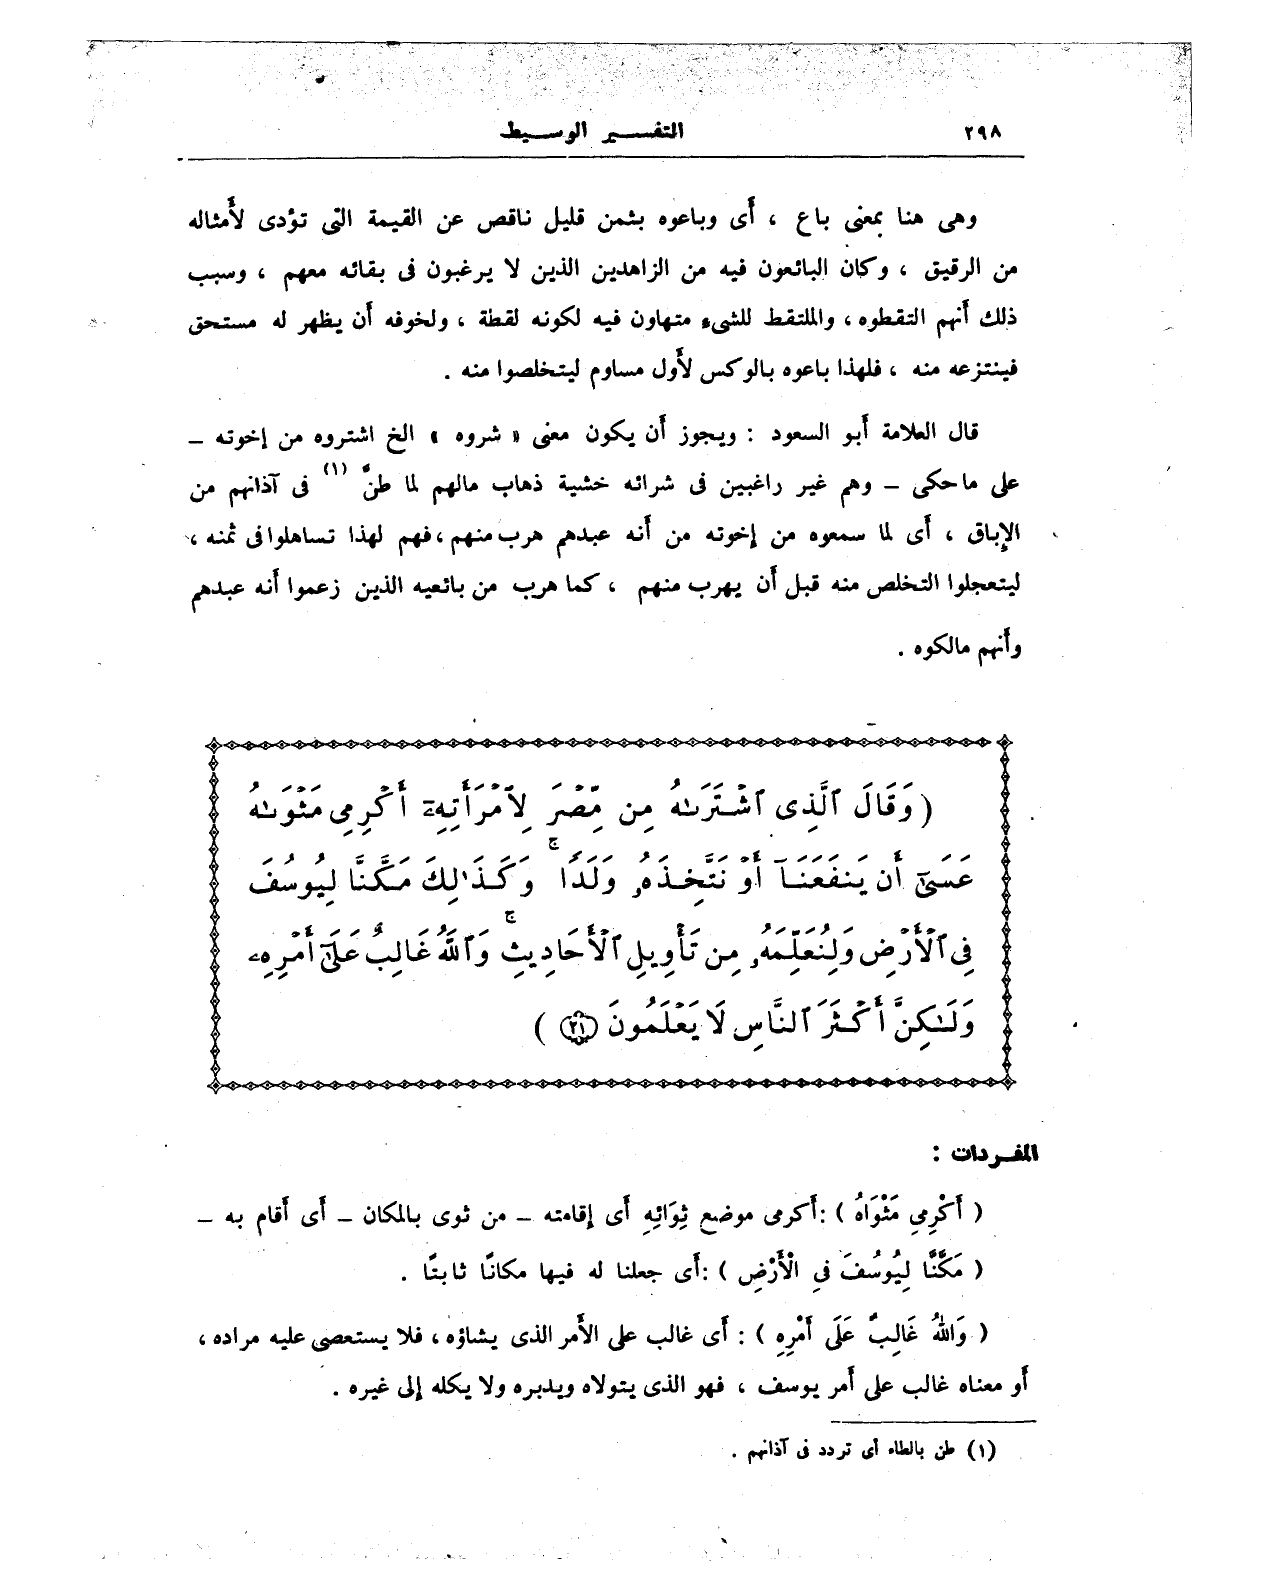 ٢٩٨
التفسير الوسيط
وهى هنا بمعنى باع ، أى وباعوه بثمن قليل ناقص عن القيمة التى تؤدى لأمثاله
من الرقيق ، وكان البائعون فيه من الزاهدين الذين لا يرغبون فى بقائه معهم ، وسبب
ذلك أنهم التقطوه ، والملتقط للشىء متهاون فيه لكونه لقطة ، ولخوفه أن يظهر له مستحق
فينتزعه منه ، فلهذا باعوه بالوكس لأول مساوم ليتخلصوا منه .
قال العلامة أبو السعود : ويجوز أن يكون معنى « شروه » الخ اشتروه من إخوته –
على ماحكى – وهم غير راغبين فى شرائه خشية ذهاب مالهم لما طنَّ (١) فى آذانهم من
الإباق ، أى لما سمعوه من إخوته من أنه عبدهم هرب منهم ، فهم لهذا تساهلوا فى ثمنه ،
ليتعجلوا التخلص منه قبل أن يهرب منهم ، كما هرب من بائعيه الذين زعموا أنه عبدهم
وأنهم مالكوه .
( وَقَالَ ٱلَّذِى ٱشْتَرَىٰهُ مِن مِّصْرَ لِٱمْرَأَتِهِۦٓ أَكْرِمِى مَثْوَىٰهُ
عَسَىٰٓ أَن يَنفَعَنَآ أَوْ نَتَّخِذَهُۥ وَلَدًا ۚ وَكَذَٰلِكَ مَكَّنَّا لِيُوسُفَ
فِى ٱلْأَرْضِ وَلِنُعَلِّمَهُۥ مِن تَأْوِيلِ ٱلْأَحَادِيثِ ۚ وَٱللَّهُ غَالِبٌ عَلَىٰٓ أَمْرِهِۦ
وَلَـٰكِنَّ أَكْثَرَ ٱلنَّاسِ لَا يَعْلَمُونَ ﴿٢١﴾ )
المفـردات :
( أَكْرِمِي مَثْوَاهُ ) : أكرمى موضع ثِوَائِهِ أى إقامته – من ثوى بالمكان – أى أقام به –
( مَكَّنَّا لِيُوسُفَ فِي الْأَرْضِ ) : أى جعلنا له فيها مكانًا ثابتًا .
( وَاللهُ غَالِبٌ عَلَى أَمْرِهِ ) : أى غالب على الأمر الذى يشاؤه ، فلا يستعصى عليه مراده ،
أو معناه غالب على أمر يوسف ، فهو الذى يتولاه ويدبره ولا يكله إلى غيره .
(١) طن بالطاء أى تردد فى آذانهم .